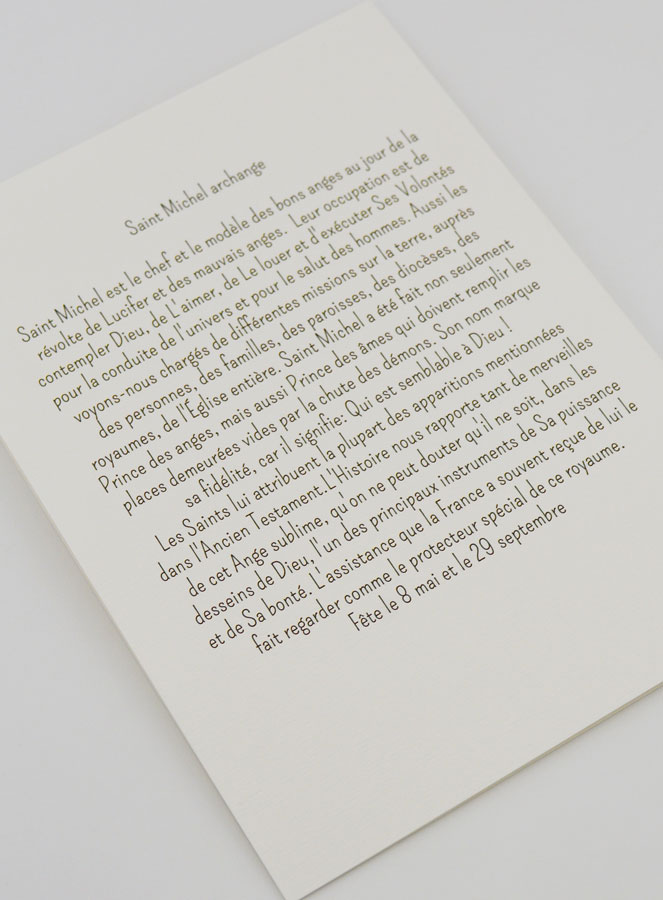 Saint Michel archange
Saint Michel est le chef et le modèle des bons anges au jour de la
révolte de Lucifer et des mauvais anges. Leur occupation est de
contempler Dieu, de L'aimer, de Le louer et d'exécuter Ses Volontés
pour la conduite de l'univers et pour le salut des hommes. Aussi les
voyons-nous chargés de différentes missions sur la terre, auprès
des personnes, des familles, des paroisses, des diocèses, des
royaumes, de l'Église entière. Saint Michel a été fait non seulement
Prince des anges, mais aussi Prince des âmes qui doivent remplir les
places demeurées vides par la chute des démons. Son nom marque
sa fidélité, car il signifie: Qui est semblable à Dieu !
Les Saints lui attribuent la plupart des apparitions mentionnées
dans l'Ancien Testament.L'Histoire nous rapporte tant de merveilles
de cet Ange sublime, qu'on ne peut douter qu'il ne soit, dans les
desseins de Dieu, l'un des principaux instruments de Sa puissance
et de Sa bonté. L'assistance que la France a souvent reçue de lui le
fait regarder comme le protecteur spécial de ce royaume.
Fête le 8 mai et le 29 septembre